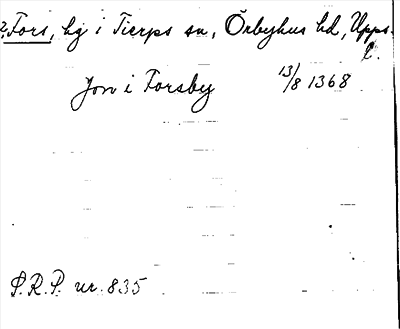 2. Fors, hg i Tierps sn, Örbyhus hd, Upps.
l.
Jon i Forsby 13/8 1368
S.R.P. nr. 835